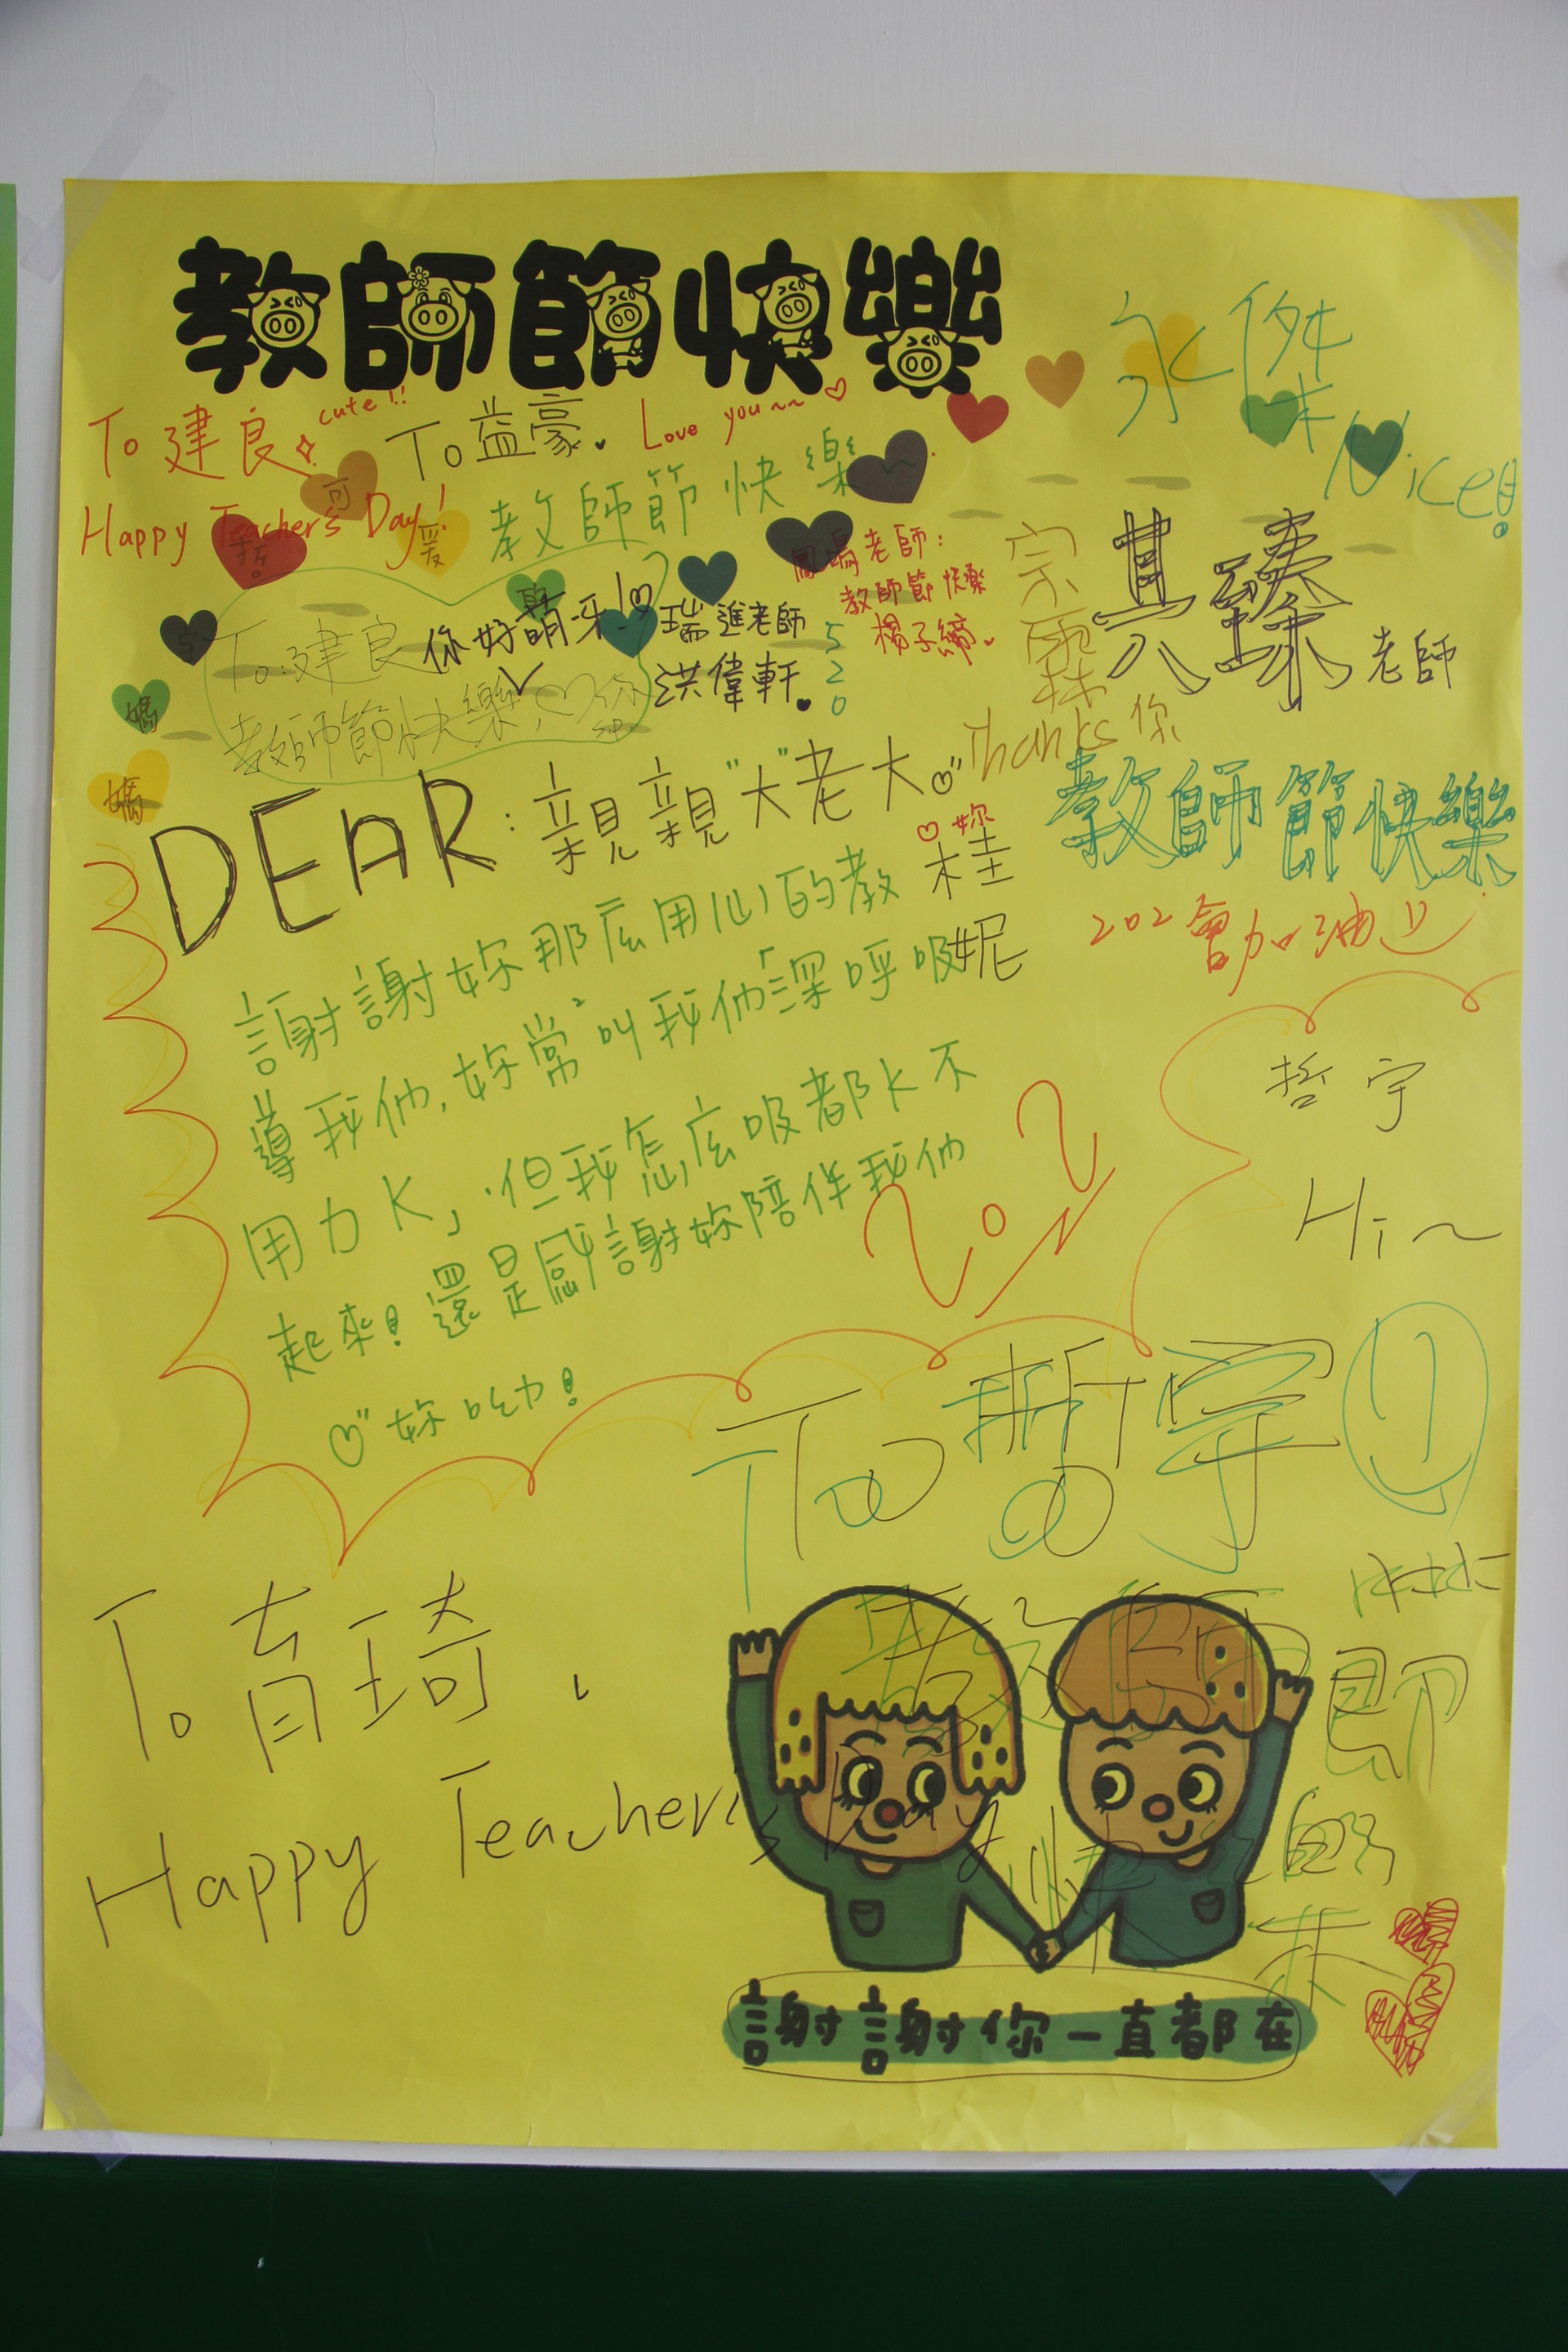 教師節快樂
永傑
Nice!
To 建良 cute!!
Happy Teacher's Day!
To 益豪. Love you~~
教師節快樂~.
可
愛
哲
宇
媽
媽
To:建良
教師節快樂,
你好萌呀!
瑞進老師
洪偉軒.
520
鳳鳴老師:
教師節快樂
楊子締.
宗霖
Thanks 你
其臻老師
教師節快樂
202會加油
DEAR:親親"大"老大
妳
桂妮
謝謝妳那庅用心的教
導我們,妳常叫我們「深呼吸
用力K」.但我怎庅吸都K不
起來!還是感謝妳陪伴我們
妳呦!
202
哲宇
Hi~
To 哲宇
教師節快樂
To 育琦.
Happy Teacher's Day
謝謝你一直都在